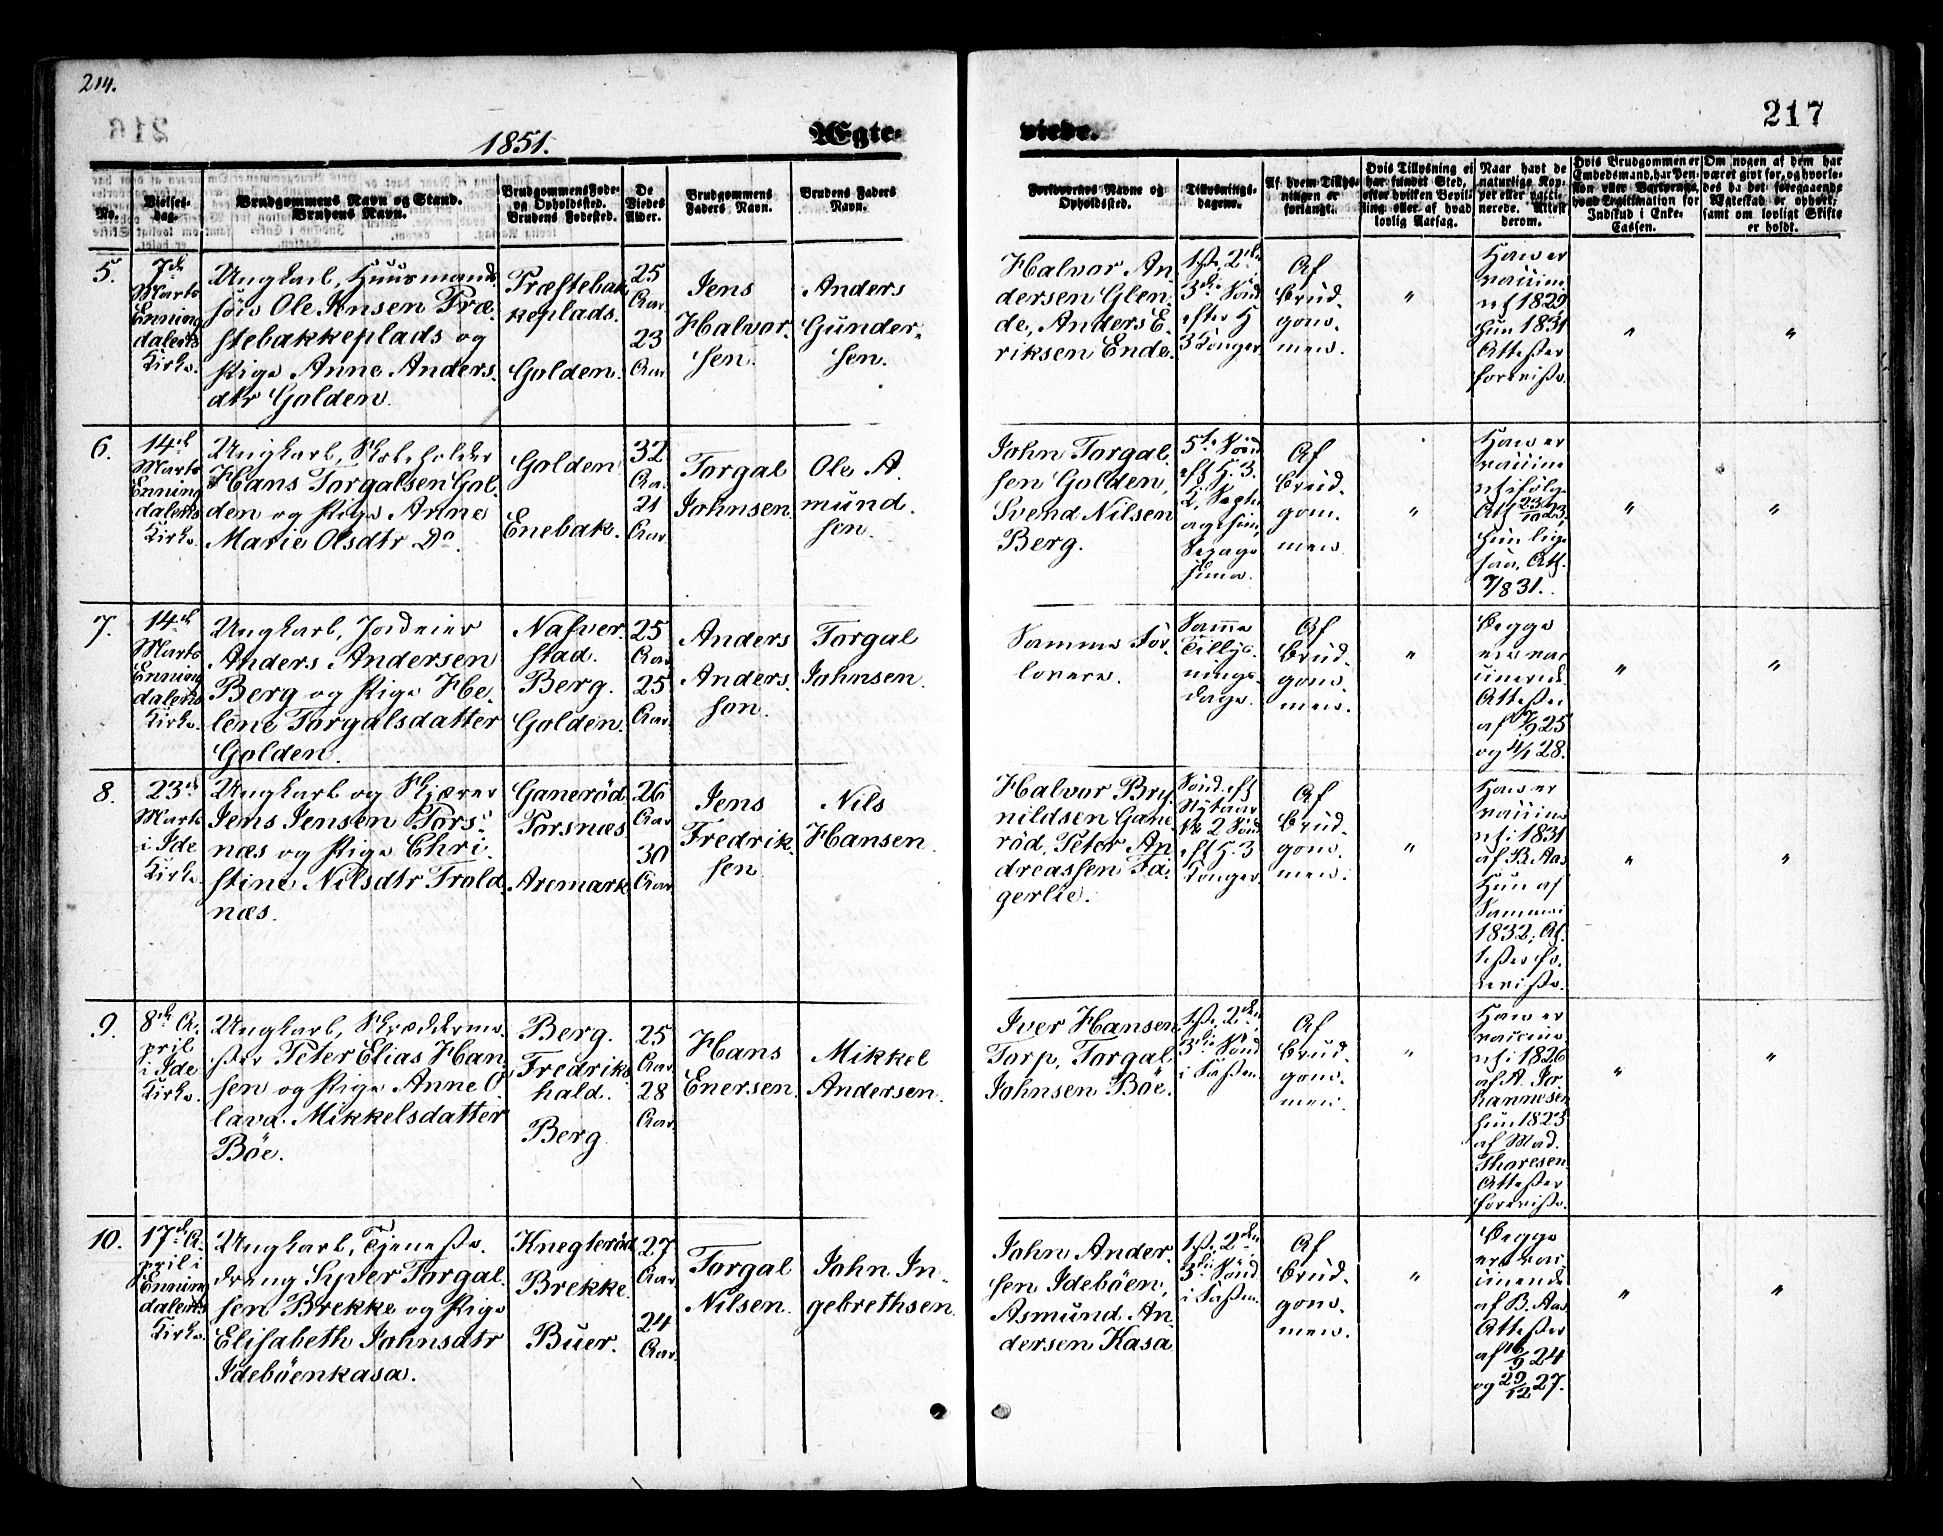 214.
217
1851.
Ægte-
viede.
No.
Vielses-
dag.
Brudgommens Navn og Stand.
Brudens Navn.
Brudgommens Føde-
og Opholdssted.
Brudens Fødested.
De
Viedes
Alder.
Brudgommens
Faders Navn.
Brudens Faders
Navn.
Forlovernes Navne og
Opholdssted.
Tillysnings-
dagene.
Af hvem Tillys-
ningen er
forlangt.
Hvis Tillysning ei
har fundet Sted,
efter hvilken Bevil-
ling eller af hvad
lovlig Aarsag.
Naar havt de
naturlige Kop-
per eller vacci-
nerede. Attest
derom.
Hvis Brudgommen er
Embedsmand, har Pen-
sion eller Vartpenge,
hvad Legitimation for
Indskud i Enke-
Cassen.
Om nogen af dem har
været gift før, og hvorle-
des da det foregaaende
Ægteskab er ophørt;
samt om lovligt Skifte
er holdt.
5.
7de
Marts
Enning
dalens
Kirke.
Ungkarl, Huusmands
søn Ole Jensen Præ-
stebakkeplads og
Pige Anne Anders-
dtr Golden.
Præstebak
keplads.
Golden.
25
Aar
23
Aar
Jens
Halvor-
sen.
Anders
Gunder-
sen.
Halvor An
dersen Glen-
de, Anders E-
riksen Ende.
1ste, 2den
3die Sønd
efter H
3 Konger.
Af
Brud-
gom-
men.
"
Han er
vaccine
ret 1829,
hun 1831
Attester
foreviste.
"
"
6.
14de
Marts
Enning
dalens
Kirke.
Ungkarl, Skoleholder
Hans Torgalsen Gol-
den og Pige Anne
Marie Olsdtr Do.
Golden
Enebak.
32
Aar.
21
Aar.
Torgal
Johnsen.
Ole A
mund-
sen.
John Torgal
sen Golden,
Svend Nilsen
Berg.
5te Sønd
eft H. 3
K, Septu
agesima,
Sexage
sima.
Af
Brud-
gom-
men.
"
Han er
vaccine
ret ifølge
Att 23/10 23,
hun lige
saa, Att.
7/8 31.
"
"
7.
14de
Marts
Enning
dalens
Kirke.
Ungkarl, Jordeier
Anders Andersen
Berg og Pige He-
lene Torgalsdatter
Golden.
Nafver-
stad.
Berg.
Golden.
25
Aar
25
Aar.
Anders
Anders-
son.
Torgal
Johnsen.
Samme For
lovere.
Samme
Tillys-
nings-
dage.
Af
Brud-
gom-
men.
"
Begge
ere vac
cinerede
Attester
af 7/9 25
og 4/1 28.
"
"
8.
23de
Marts
i Ide
Kirke.
Ungkarl og Skjærer
Jens Jensen Tors-
næs og Pige Chri-
stine Nilsdtr Trold
næs.
Ganerød
Torsnæs
Aremark
26
Aar.
30
Aar.
Jens
Fredrik-
sen.
Nils
Hansen.
Halvor Bry
nildsen Gane
rød, Peter An
dreassen Fa-
gerlie.
Sønd. eft
Nytaar
No 2 Sønd
eft H. 3
Konger.
Af
Brud-
gom-
men.
"
Han er
vaccine
ret i 1831
af B. Aas
Hun af
Samme i
1832, At-
tester fo-
reviste.
"
"
9.
8de A-
pril
i Ide
Kirke.
Ungkarl, Skrædderme-
ster Peter Elias Han-
sen og Pige Anne O-
lava Mikkelsdatter
Böe.
Berg.
Fredriks
hald.
Berg
25
Aar.
28
Aar.
Hans
Enersen.
Mikkel
Andersen.
Iver Hansen
Torp, Torgal
Johnsen Böe.
1ste, 2den
3die Sønd
i Fasten.
Af
Brud-
gom-
men.
"
Han er
vaccine
ret i 1826
af A. Jo-
hannesen
hun 1823
af Mad.
Thoresen.
Attester
foreviste.
"
"
10.
17de A-
pril i
Enning
dalens
Kirke.
Ungkarl, Tjeneste-
dreng Syver Torgal-
sen Brekke og Pige
Elisabeth Johnsdtr
Ideböenkasa.
Knegteröd
Brekke.
Buer.
27
Aar.
24
Aar.
Torgal
Nilsen.
John In-
gebrethsen.
John Ander-
sen Ideböen,
Asmund An-
dersen Kasa
1ste, 2den
3die Sønd
i Fasten.
Af
Brud-
gom-
men.
"
Begge
ere vac
cinerede
af B. Aas
Attester
af 16/9 24
og 29/12 27.
"
"